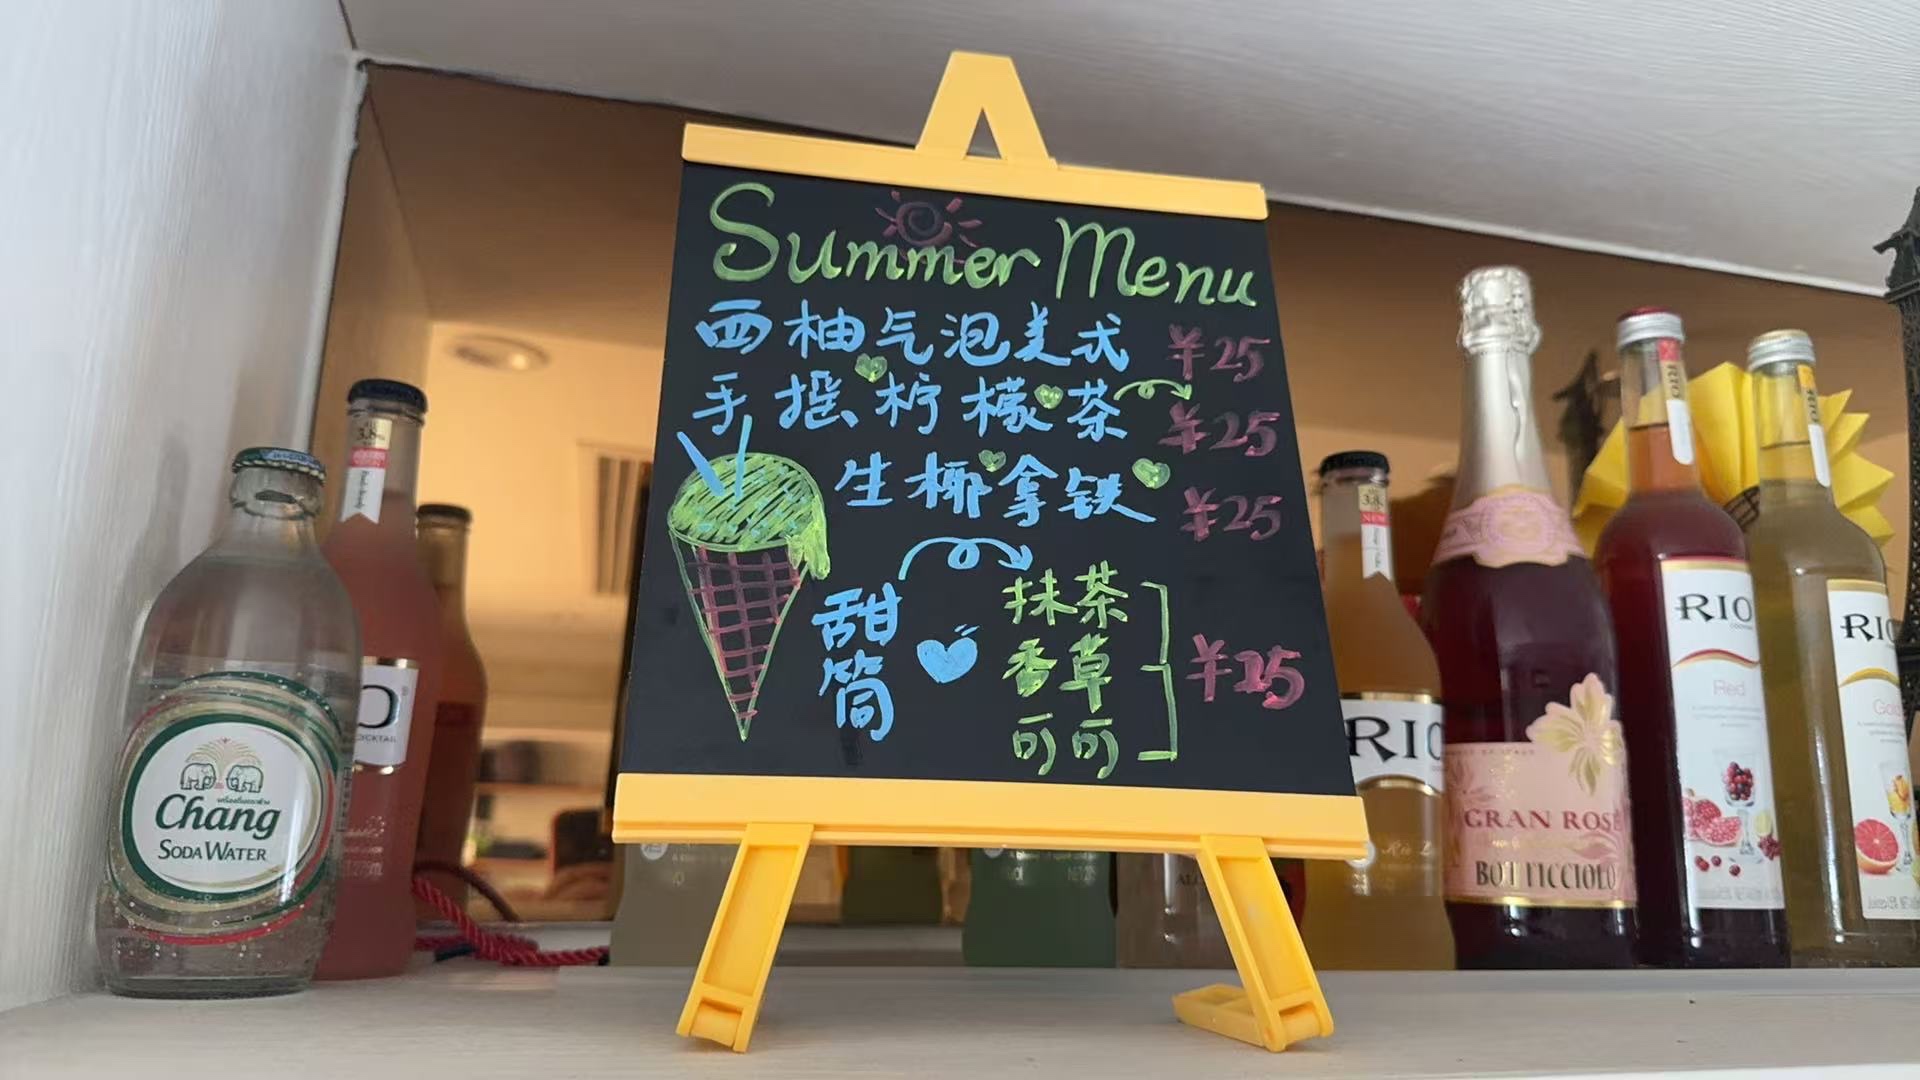 Summer Menu
西柚气泡美式 ¥25
手摇柠檬茶 ¥25
生椰拿铁 ¥25
甜筒
抹茶
香草
可可
¥25
Chang
SODA WATER
3.8%
COCKTAIL
3.8%
NEW
RIO
GRAN ROSÉ
BOTTICCIOLO
RIO
RIO
Red
RIO